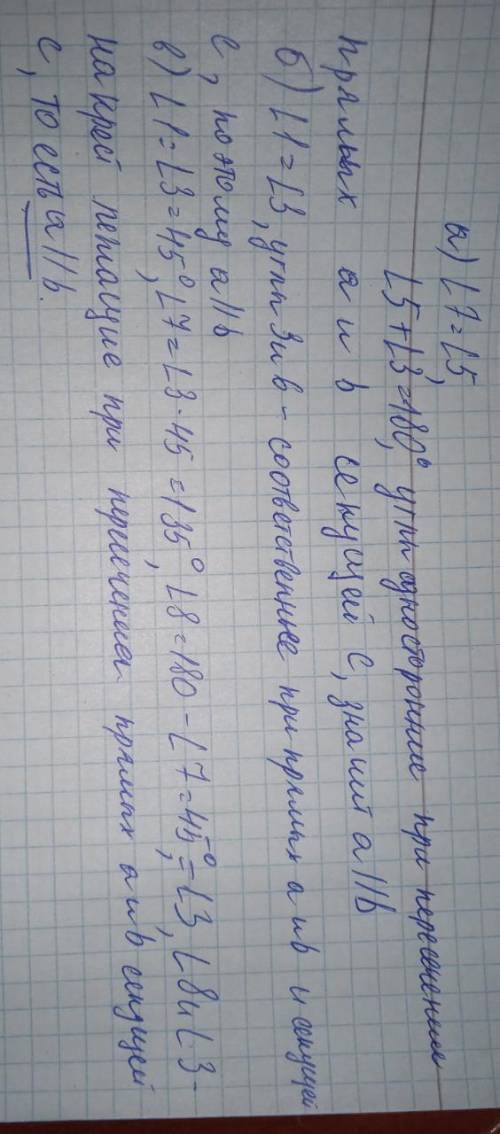 а) ∠7=∠5,
∠5+∠3=180°, углы односторонние при пересечении
прямых а и b секущей С, значит а||b
б) ∠1=∠3, углы 3 и в - соответственные при прямых а и b и секущей
с, поэтому а||b
в) ∠1=∠3=45°, ∠7=∠3·45=135°, ∠8=180-∠7=45°,=∠3, ∠8 и ∠3-
на крест лежащие при пересечении прямых а и b секущей
с, то есть а||b.